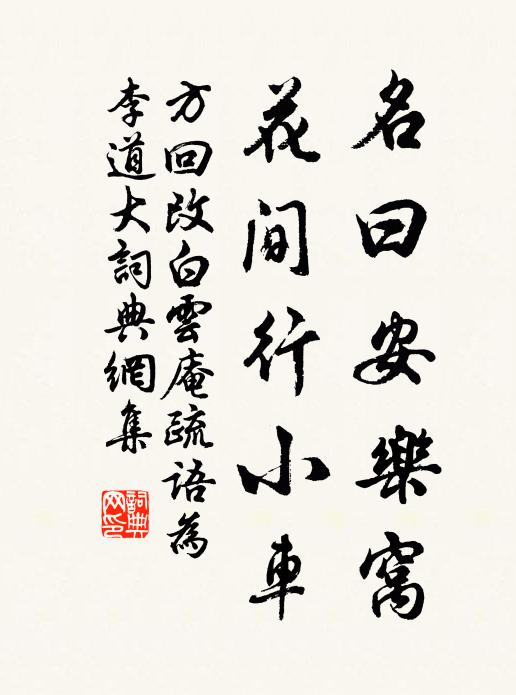 名曰安樂窩
花間行小車
方回改白雲庵疏語為
李道大詞典網集
詞典網印